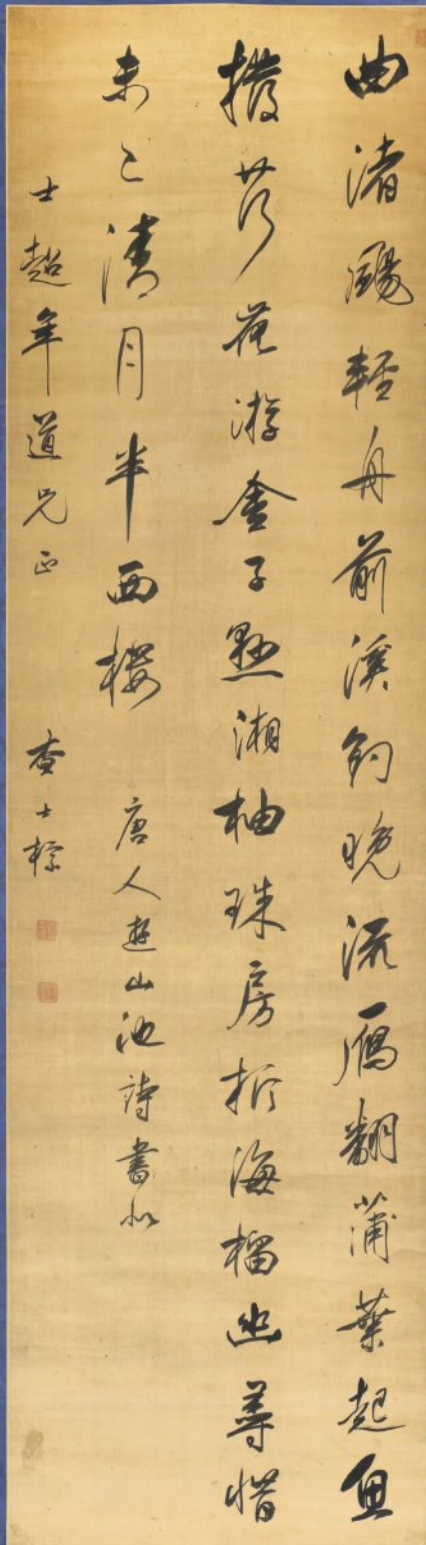 曲渚颺輕舟前溪釣晚流鴈翻蒲葉起魚
撥荇花游金子懸湘柚珠房折海榴幽尋惜
未已清月半西樓 唐人遊山池詩書似
士超年道兄正 查士標